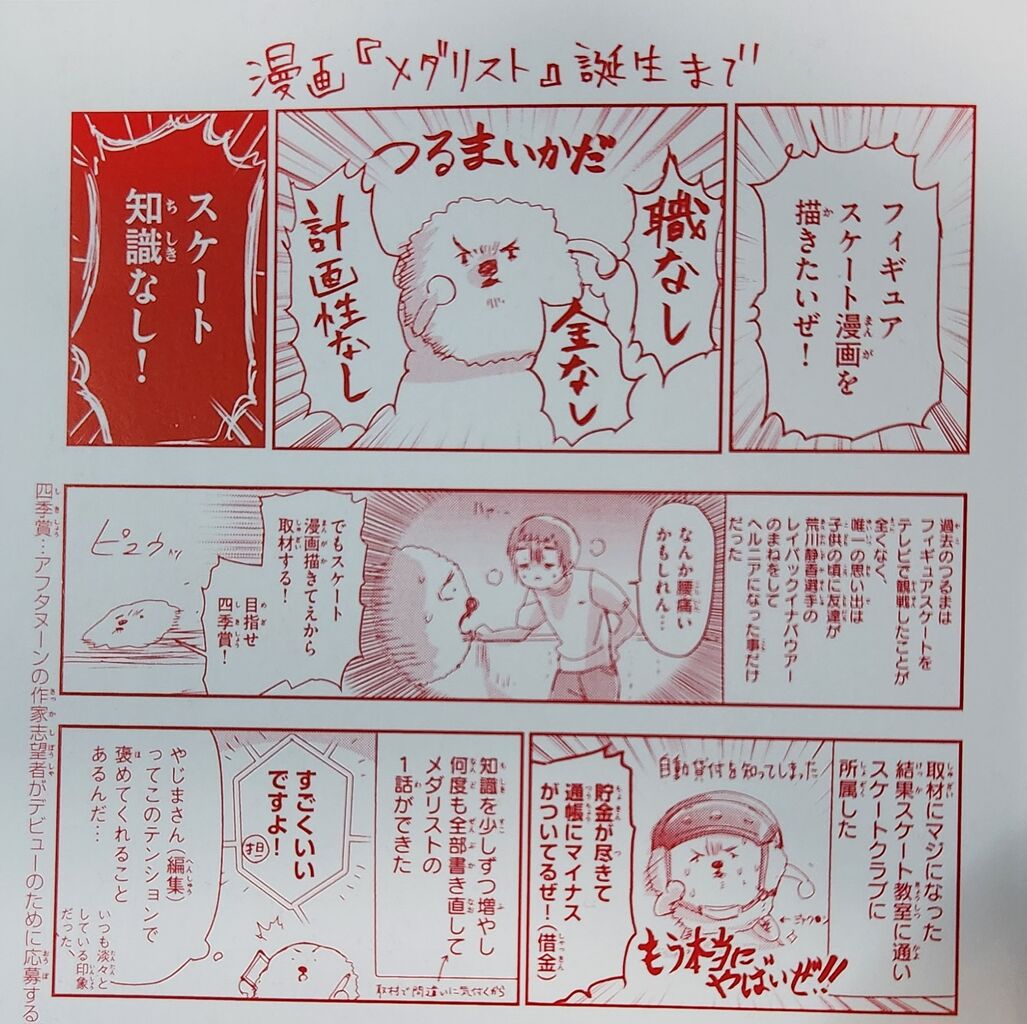 漫画『メダリスト』誕生まで
フィギュア
スケート漫画を
描きたいぜ!
つるまいかだ
職なし
金なし
計画性なし
スケート
知識なし!
過去のつるまは
フィギュアスケートを
テレビで観戦したことが
全くなく、
唯一の思い出は
子供の頃に友達が
荒川静香選手の
レイバックイナバウアー
のまねをして
ヘルニアになった事だけ
だった
なんか腰痛い
かもしれん…
でもスケート
漫画描きてえから
取材する!
目指せ
四季賞!
ピュウッ
取材にマジになった
結果スケート教室に通い
スケートクラブに
所属した
自動貸付を知ってしまった
貯金が尽きて
通帳にマイナス
がついてるぜ!(借金)
もう本当に
やばいぜ!!
知識を少しずつ増やし
何度も全部書き直して
メダリストの
1話ができた
取材で間違いに気付くから
すごくいい
ですよ!
担
やじまさん(編集)
ってこのテンションで
褒めてくれること
あるんだ…
いつも淡々と
している印象
だった
四季賞…アフタヌーンの作家志望者がデビューのために応募する